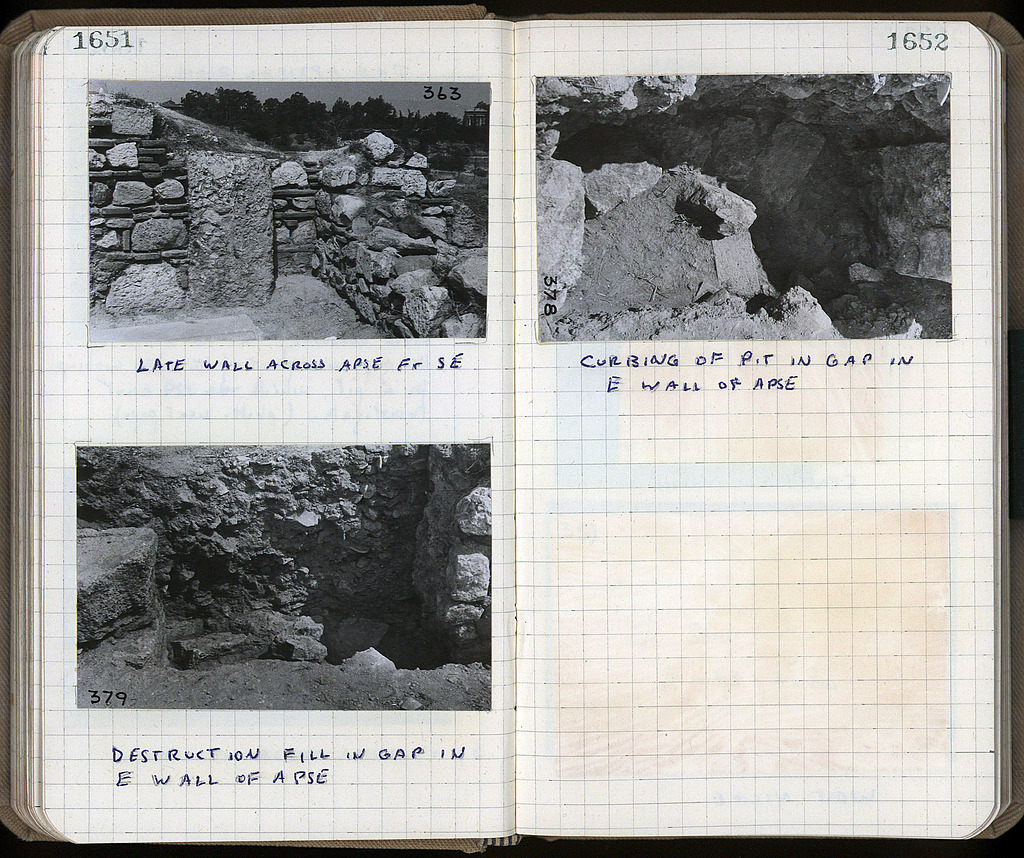 1651
363
LATE WALL ACROSS APSE Fr SE
379
DESTRUCTION FILL IN GAP IN
E WALL OF APSE
1652
378
CURBING OF PIT IN GAP IN
E WALL OF APSE